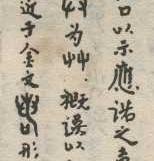 口以示應諾之
为艸，概误以
近于金文形